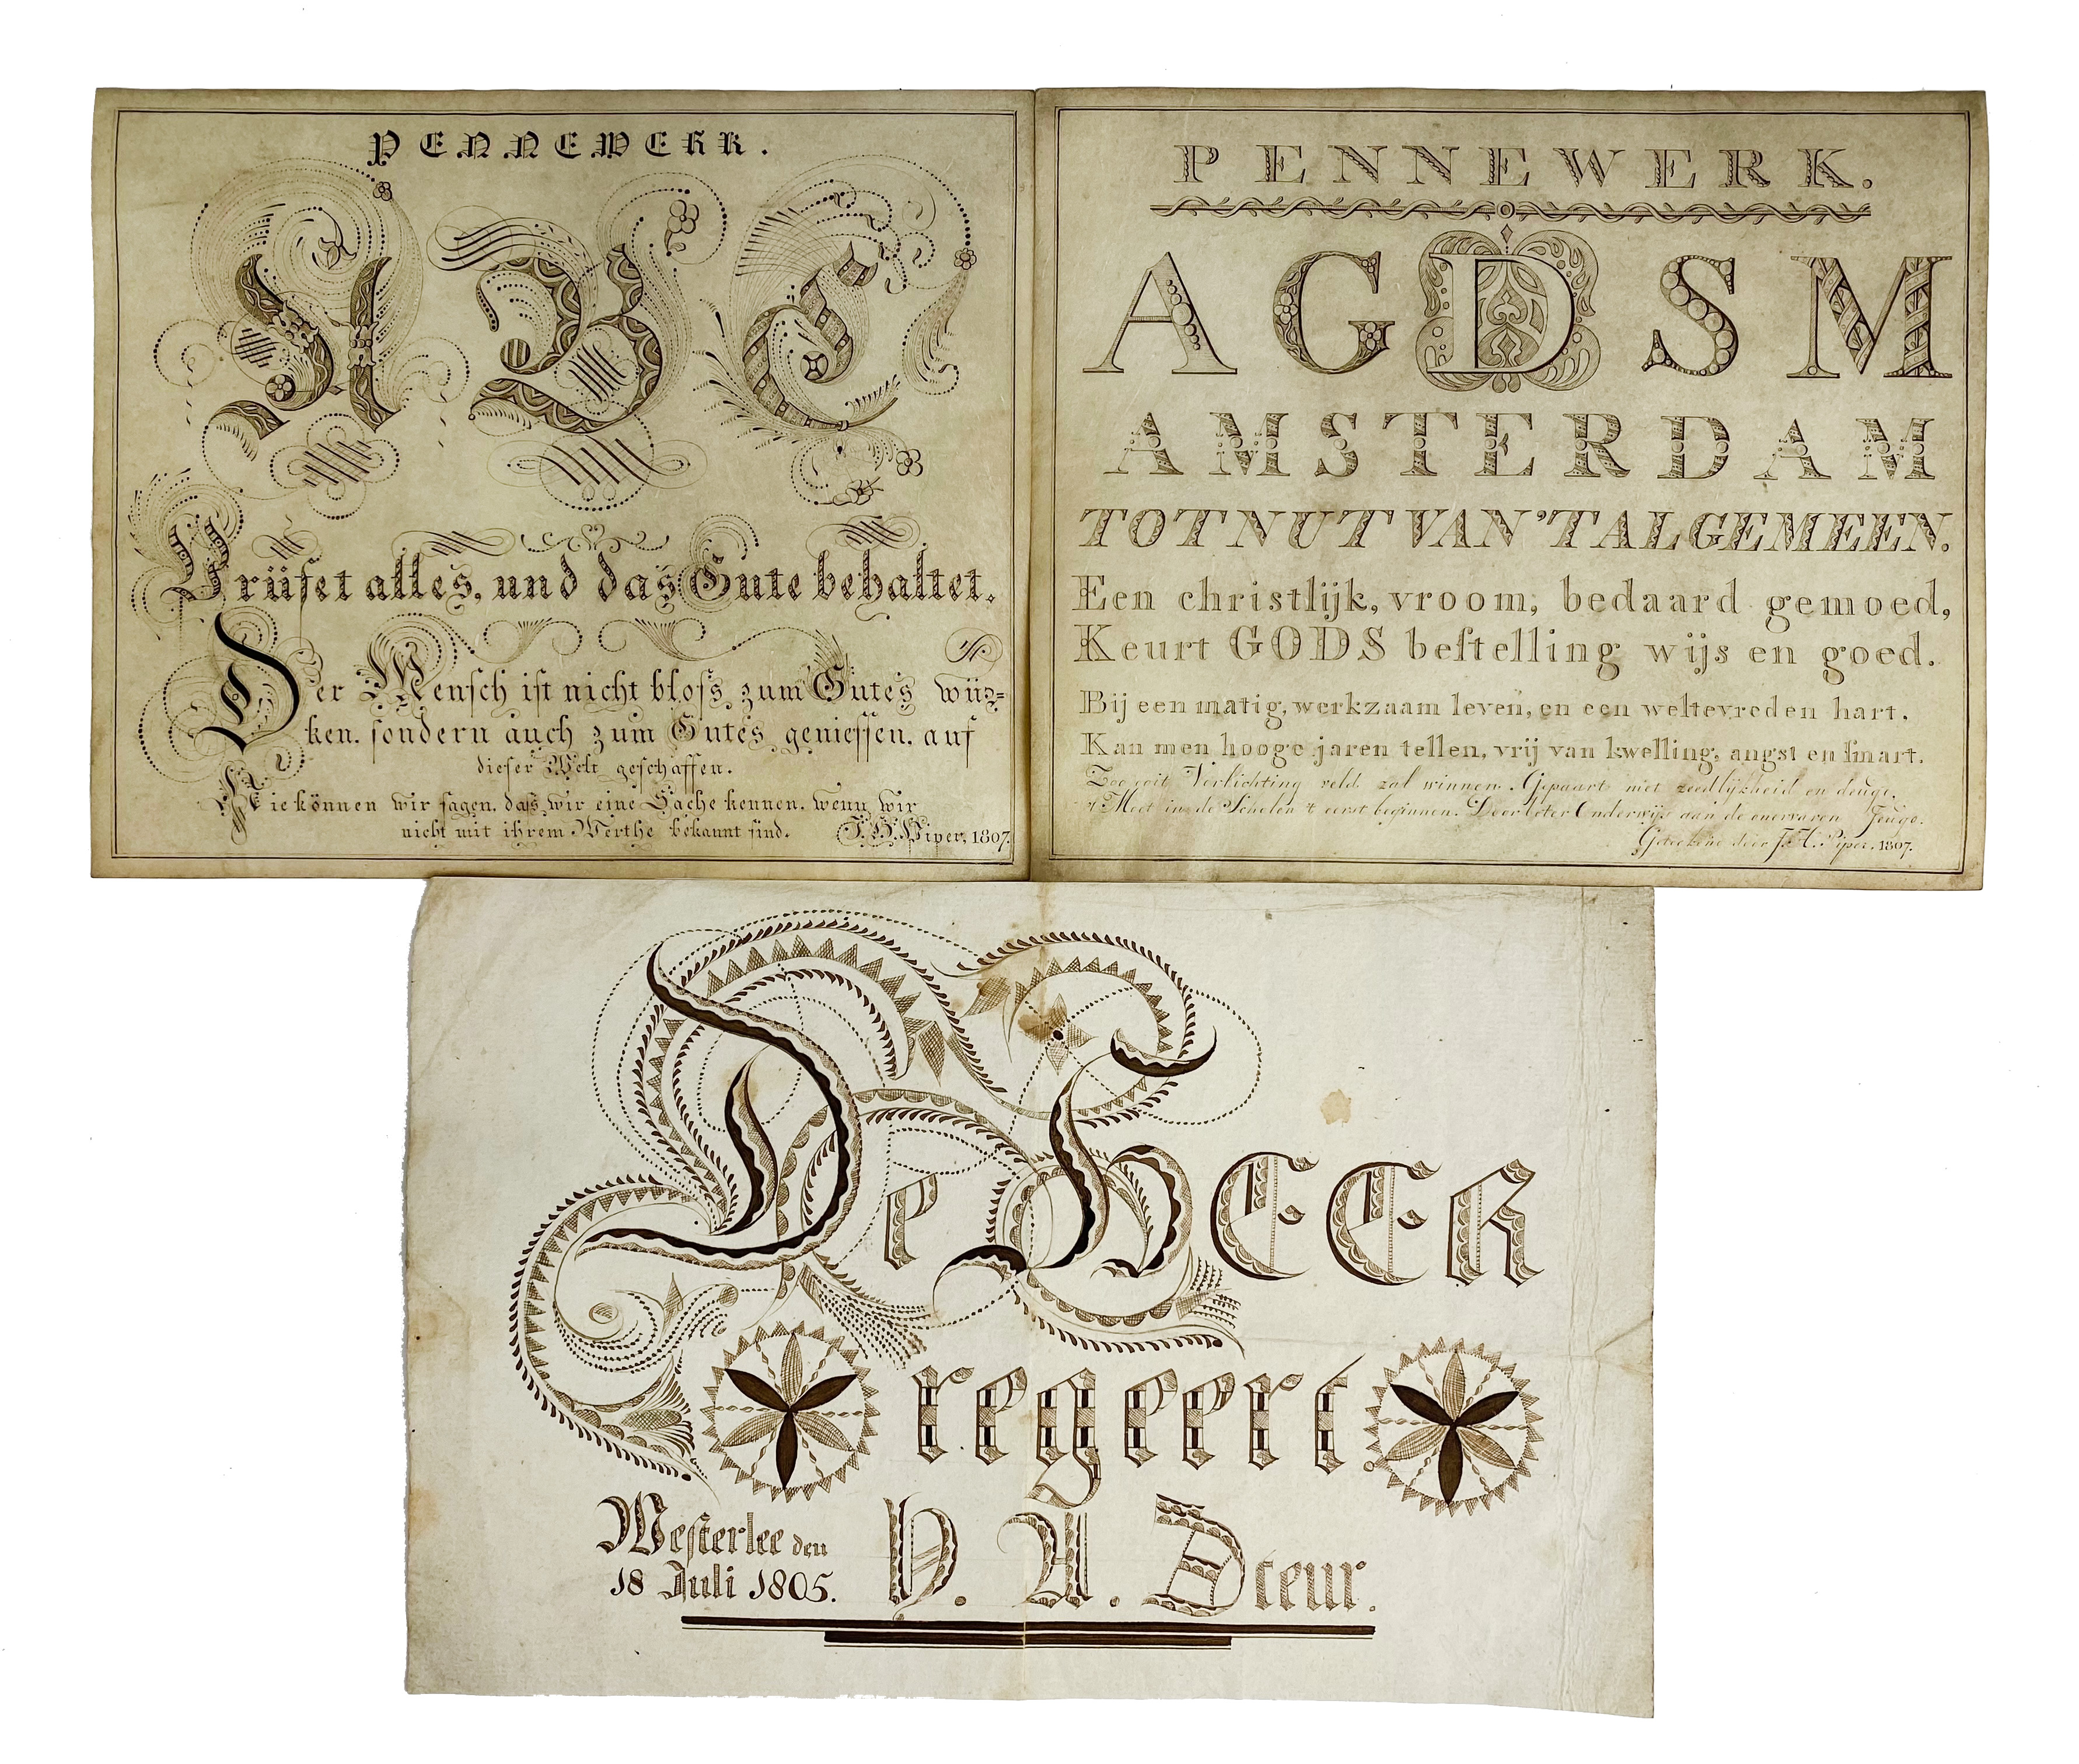 PENNEWERK.
A B C
Prüfet alles, und das Gute behaltet.
Der Mensch ist nicht bloss zum Gutes wür=
ken. sondern auch zum Gutes geniessen. auf
dieser Welt geschaffen.
Nie können wir sagen. dass wir eine Sache kennen. wenn wir
nicht mit ihrem Werthe bekannt sind. J. H. Piper, 1807.
PENNEWERK.
A G D S M
AMSTERDAM
TOT NUT VAN 'T ALGEMEEN.
Een christlijk, vroom, bedaard gemoed,
Keurt GODS bestelling wijs en goed.
Bij een matig, werkzaam leven, en een weltevreden hart.
Kan men hooge jaren tellen, vrij van kwelling, angst en smart.
Zoo ooit Verlichting veld zal winnen. Gepaart met zeedlijkheid en deugt.
't Moet in de Scholen 't eerst beginnen. Door beter Onderwijs aan de onervaren Jeugd.
door J. H. Piper. 1807.
De HEER
regeert
Westerlee den
18 Juli 1805.
Steur.